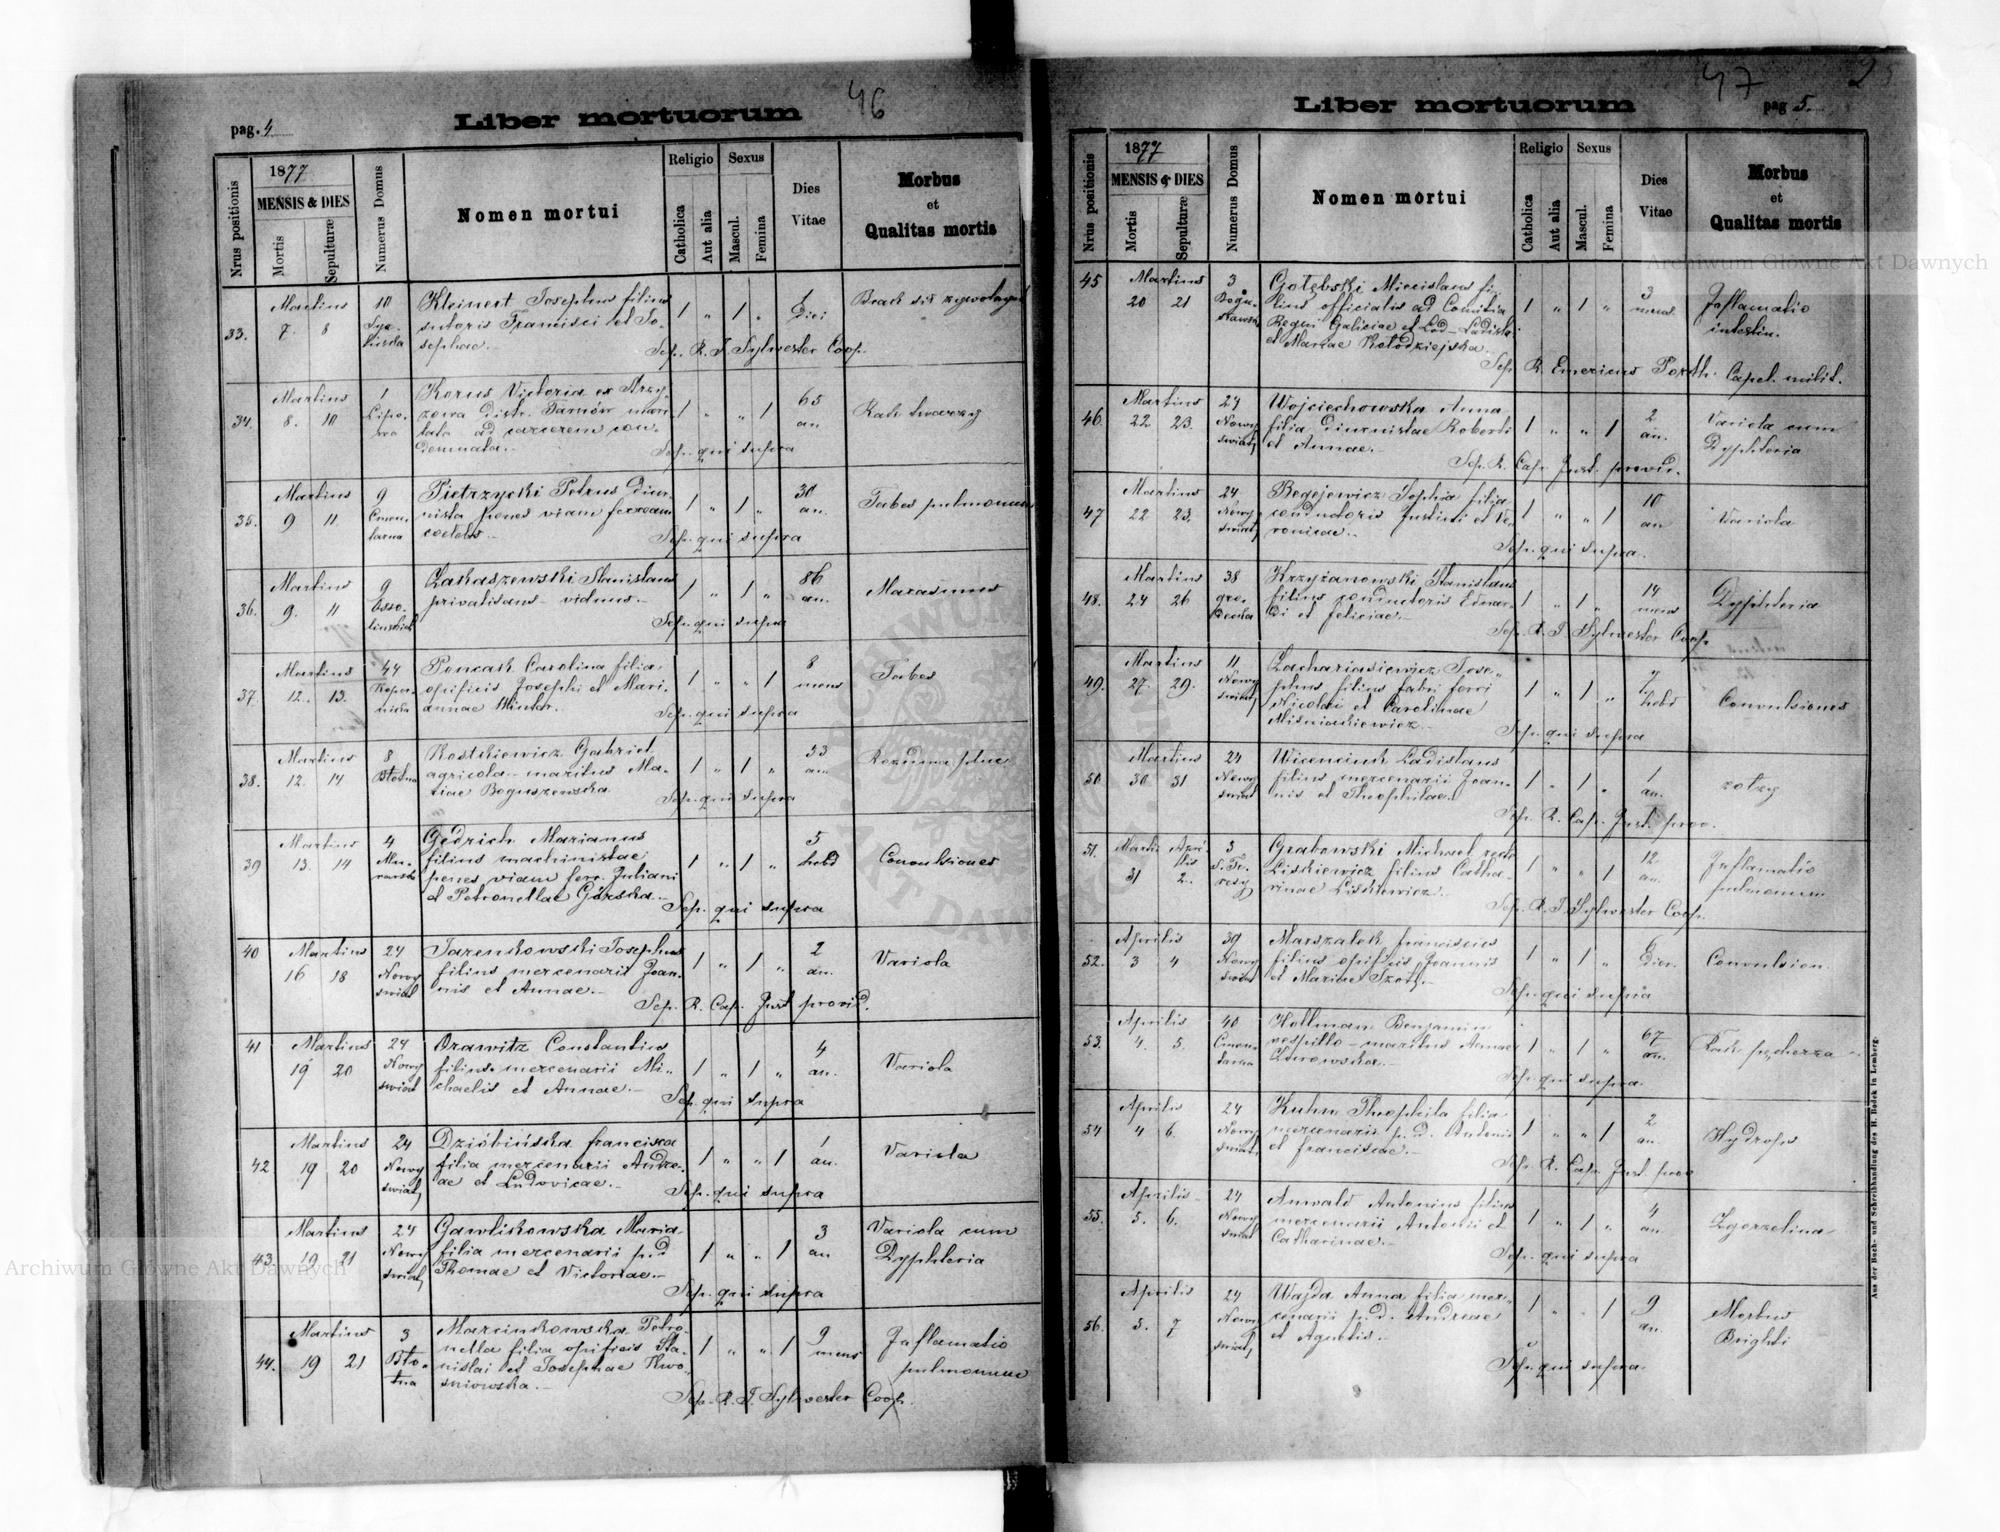 46
pag. 4
Liber mortuorum
Nrus positionis
1877
MENSIS & DIES
Mortis
Sepulturæ
Numerus Domus
Nomen mortui
Religio
Catholica
Aut alia
Sexus
Mascul.
Femina
Dies Vitae
Morbus et Qualitas mortis
33. Martius 7. 8 10
Kleinert Josephus filius
sutoris Francisci et Jo-
sephae.
1 " 1 " 1 Diei
Brak sił żywotnych
Sep. R. J. Sylwester Coop.
34. Martius 8. 10 1 Lipo-
wa
Korus Victoria ex Krzy-
żowa distr. Tarnów mari-
tata ad carcerem con-
demnata.
1 " " 1 65 an.
Rak twarzy
Sep. qui supra
35. Martius 9 11 9 Cmen-
tarna
Pietrzycki Petrus diur-
nista penes viam ferream
coelebs.
1 " 1 " 30 an.
Tabes pulmonum
Sep. qui supra
36. Martius 9. 11 9 Osso-
linskich
Łakaszewski Stanislaus
privatisans viduus.
1 " 1 " 86 an.
Marasmus
Sep. qui supra
37. Martius 12. 13. 44 Koper-
nika
Poncak Carolina filia
opificis Josephi et Mari-
annae
1 " " 1 8 mens
Tabes
Sep. qui supra
38. Martius 12. 14 8 Błotna
Kostkiewicz Gabriel
agricola maritus Ma-
riae Boguszewska
1 " 1 " 53 an.
Sep. qui supra
39 Martius 13. 14 4 Mu-
rarska
Gedrich Marianus
filius machinistae
penes viam ferr. Juliani
et Petronellae Górska.
1 " 1 " 5 hebd
Convulsiones
Sep. qui supra
40 Martius 16 18 24 Nowy
świat
Tarenkowski Josephus
filius mercenarii Joan-
nis et Annae.
1 " 1 " 2 an.
Variola
Sep. R. Cap. Just. provid.
41 Martius 19 20 24 Nowy
świat
Orawitz Constantius
filius mercenarii Mi-
chaelis et Annae.
1 " 1 " 4 an.
Variola
Sep. qui supra
42 Martius 19 20 24 Nowy
świat
Dzióbińska Francisca
filia mercenarii Andre-
ae et Ludovicae.
1 " " 1 1 an.
Variola
Sep. qui supra
43. Martius 19 21 24 Nowy
świat
Gawlikowska Maria
filia mercenarii p. d.
Thomae et Victoriae.
1 " " 1 3 an
Variola cum
Dyphteria
Sep. qui supra
44. Martius 19 21 3 Bło-
tna
Marcinkowska Petro-
nella filia opificis Sta-
nislai et Josephae
1 " " 1 9 mens
Inflamatio
pulmonum
Sep. R. J. Sylwester Coop.
47
25
Liber mortuorum
pag 5.
Nrus positionis
1877
MENSIS & DIES
Mortis
Sepulturæ
Numerus Domus
Nomen mortui
Religio
Catholica
Aut alia
Sexus
Mascul.
Femina
Dies Vitae
Morbus et Qualitas mortis
45 Martius 20 21 3
Gołębski Miecislaus fi-
lius officialis ad Comitia
Regni Galiciae et Lod. Ladislai
et Mariae Kołodziejska.
1 " 1 " 3 mens.
Inflamatio
intestin.
Sep. R. Emericus Porth. Capel. milit.
46. Martius 22 23. 24 Nowy
świat
Wojciechowska Anna
filia diurnistae Roberti
et Annae.
1 " " 1 2 an.
Variola cum
Dyphteria
Sep. R. Cap. Just. provid.
47 Martius 22 23. 24 Nowy
świat
Regejewicz Sophia filia
conductoris Justini et Ve-
ronicae.
1 " " 1 10 an
Variola
Sep. qui supra.
48. Martius 24 26 38 gro-
decka
Krzyżanowski Stanislaus
filius conductoris Eduar-
di et Feliciae.
1 " 1 " 14 mens
Dyphteria
Sep. R. J. Sylwester Coop.
49. Martius 27. 29. 11 Nowy
świat
Zachariasiewicz Jose-
phus filius fabri ferri
Nicolai et Carolinae
Miśniakiewicz.
1 " 1 " 7 hebd
Convulsiones
Sep. qui supra
50 Martius 30 31 24 Nowy
świat
Wicenciuk Ladislaus
filius mercenarii Joan-
nis et Theophilae.
1 " 1 " 1 an.
zołzy
Sep. R. Cap. Just. prov.
51. Martii 31 Apri-
lis 2. 3 S. Te-
resy
Grabowski Michael recte
Liskiewicz filius Catha-
rinae Liskiewicz.
1 " " 1 12 an.
Inflamatio
pulmonum
Sep. R. J. Sylwester Coop.
52. Aprilis 3 4 39 Nowy
świat
Marszałek Franciscus
filius opificis Joannis
et Mariae Szotz.
1 " 1 " 6 dier.
Convulsion.
Sep. qui supra
53. Aprilis 4. 5. 40 Cmen-
tarna
Hollman Benjamin
vespillo maritus Annae
Żurowska.
1 " 1 " 67 an.
Rak pęcherza
Sep. qui supra.
54 Aprilis 4 6. 24 Nowy
świat
Kuhn Theophila filia
mercenarii p. d. Antonii
et Franciscae.
1 " " 1 2 an.
Hydrops
Sep. R. Cap. Just. prov
55. Aprilis 5. 6. 24 Nowy
świat
Anwald Antonius filius
mercenarii Antonii et
Catharinae.
1 " 1 " 4 an.
Zgorzelina
Sep. qui supra
56. Aprilis 5. 7 24 Nowy
świat
Wajda Anna filia mer-
cenarii p. d. Andreae
et Agnetis.
1 " 1 9 an.
Morbus
Brighti
Sep. qui supra.
Aus der Buch- und Schreibhandlung des H. Bodek in Lemberg.
Archiwum Główne Akt Dawnych
Archiwum Główne Akt Dawnych
ARCHIWUM
AKT DAWNYCH